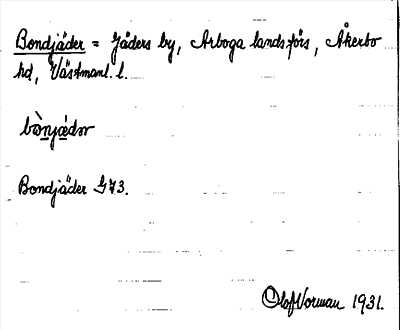 Bondjäder = Jäders by, Arboga landsförs, Åkerbo
hd, Västmanl. l.
bònjǽdər
Bondjäder G73.
Olof Vorman 1931.